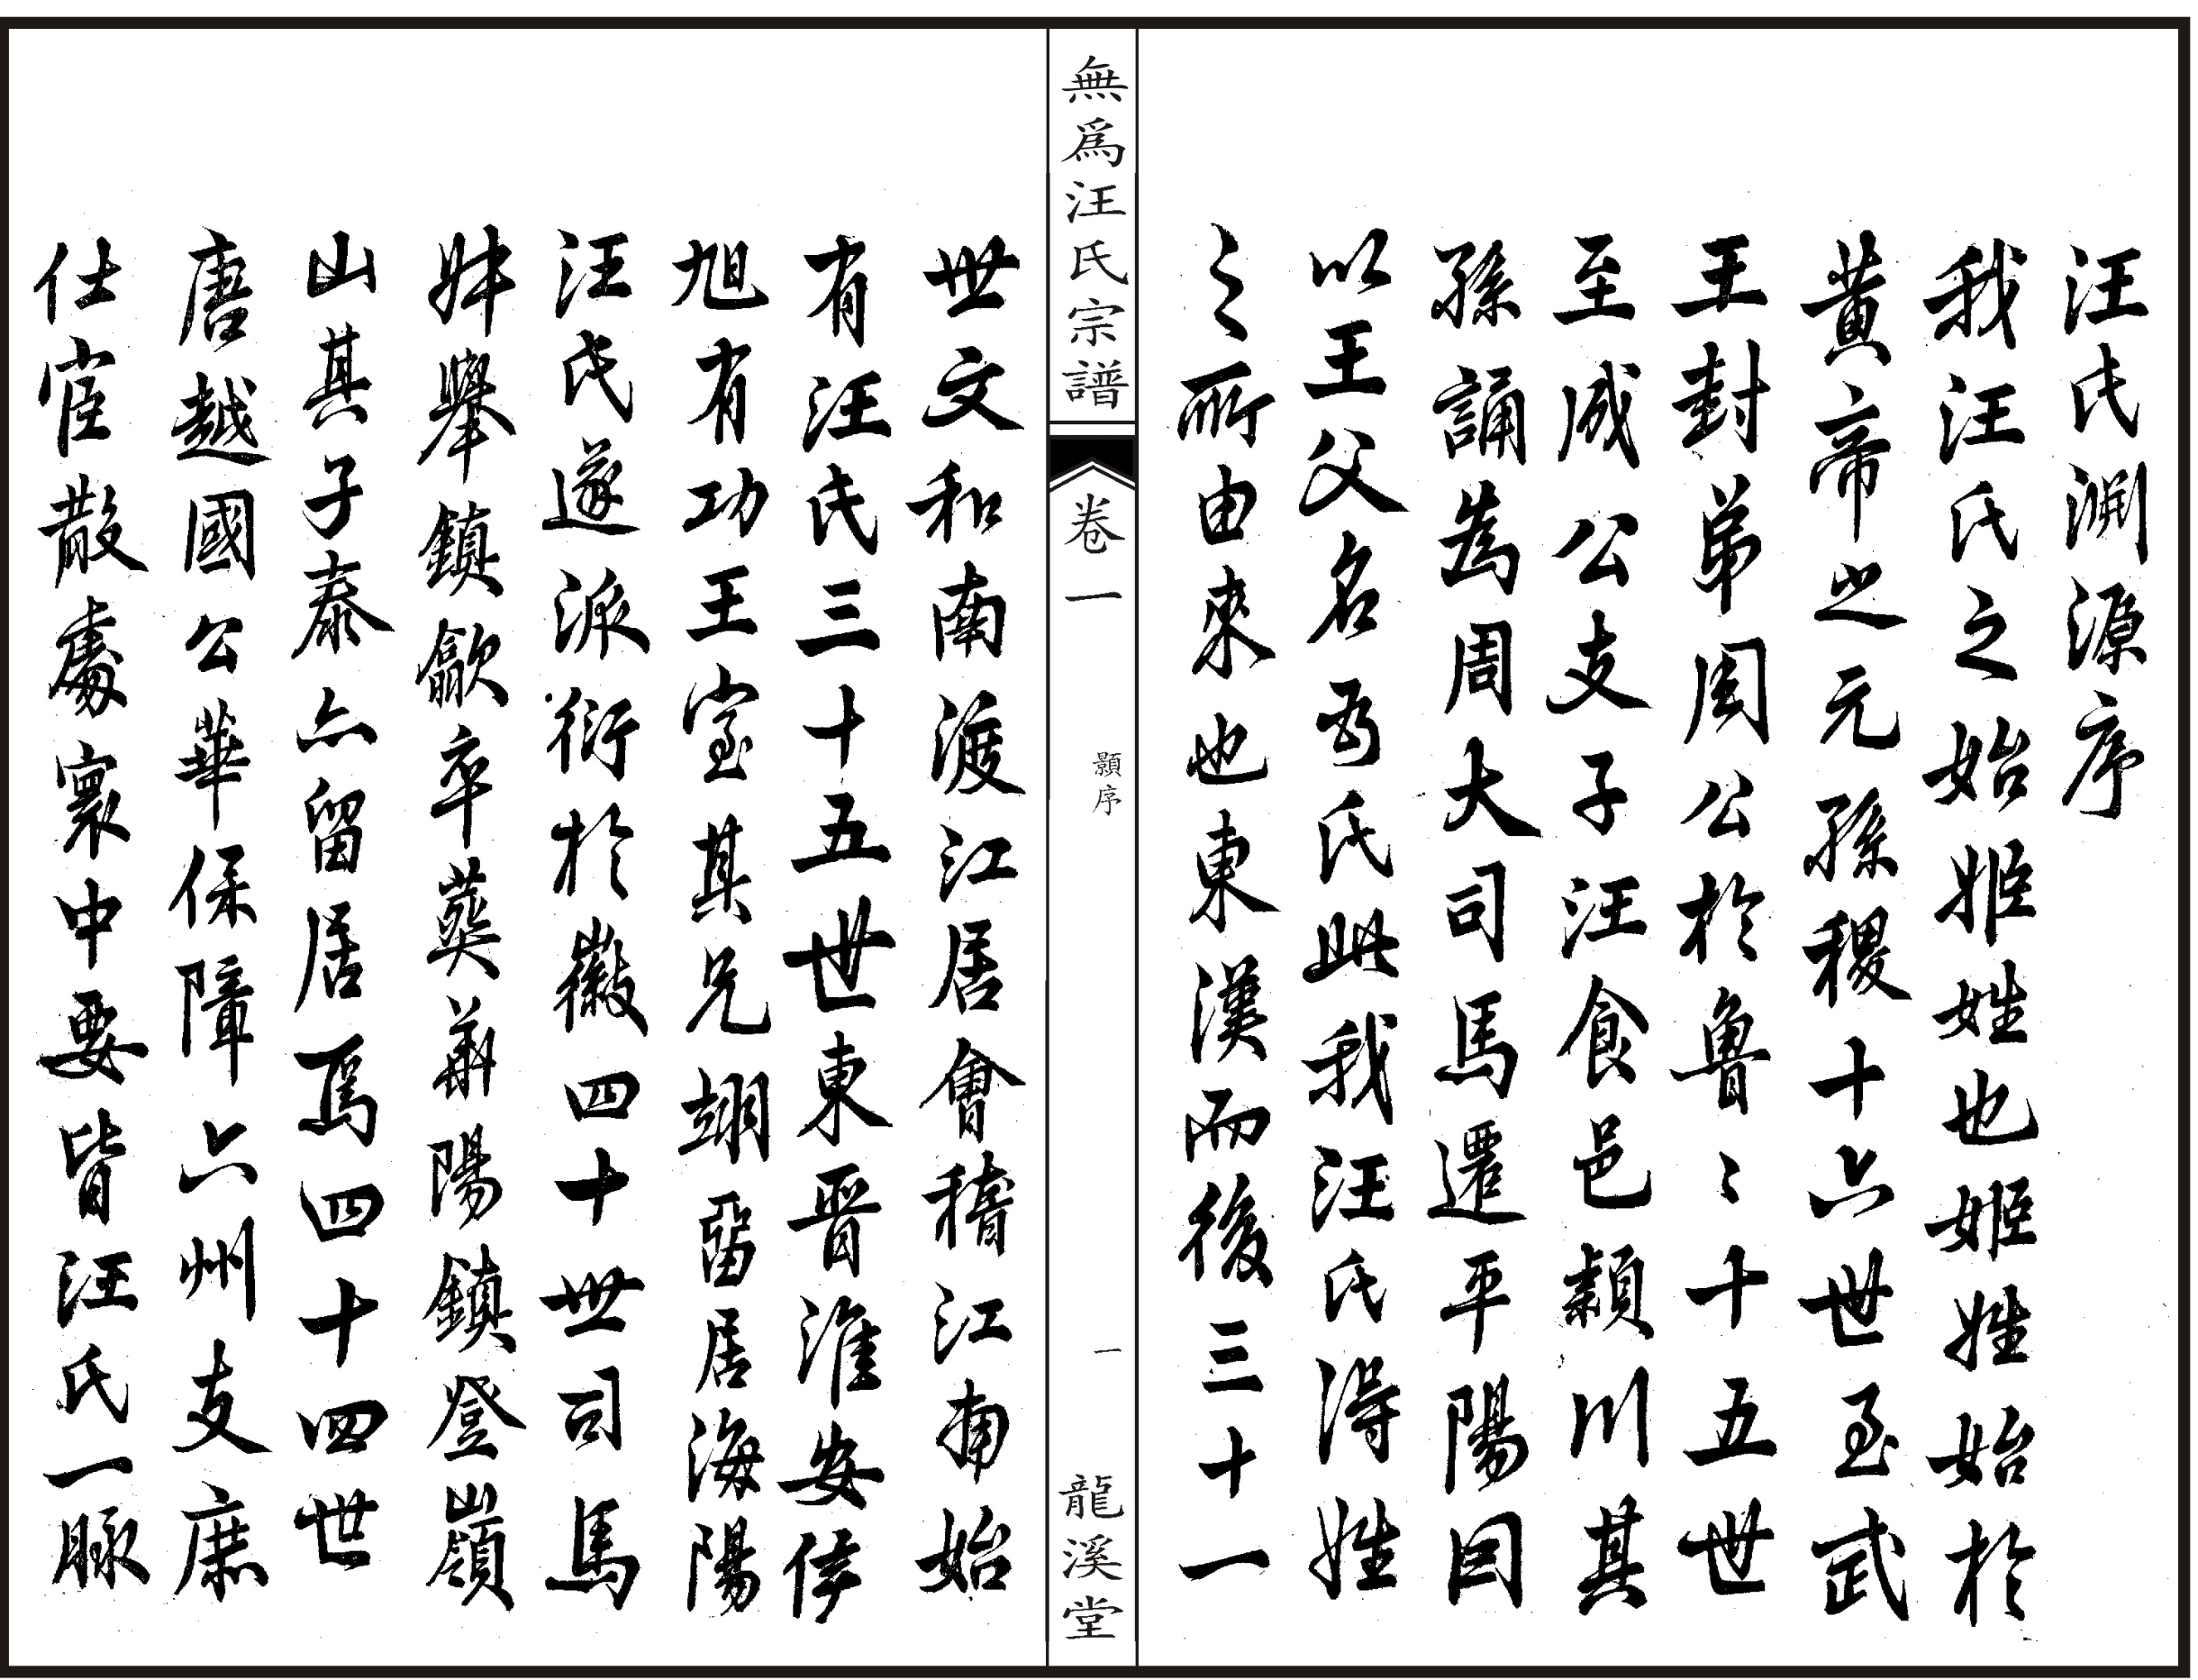 汪氏渊源序
我汪氏之始姬姓也姬姓始於
黄帝之元孫稷十六世至武
王封弟周公於魯〻十五世
至成公支子汪食邑潁川其
孫誦為周大司馬遷平陽因
以王父名為氏此我汪氏得姓
之所由來也東漢而後三十一
無爲汪氏宗譜
卷一
顥序
一
龍溪堂
世文和南渡江居會稽江南始
有汪氏三十五世東晋淮安侯
旭有功王室其兄翊留居海陽
汪氏遂派衍於徽四十世司馬
舉鎮歙卒葬華陽鎮登嶺
山其子泰六留居焉四十四世
唐越國公華保障六州支庶
仕宦散處寰中要皆汪氏一脈